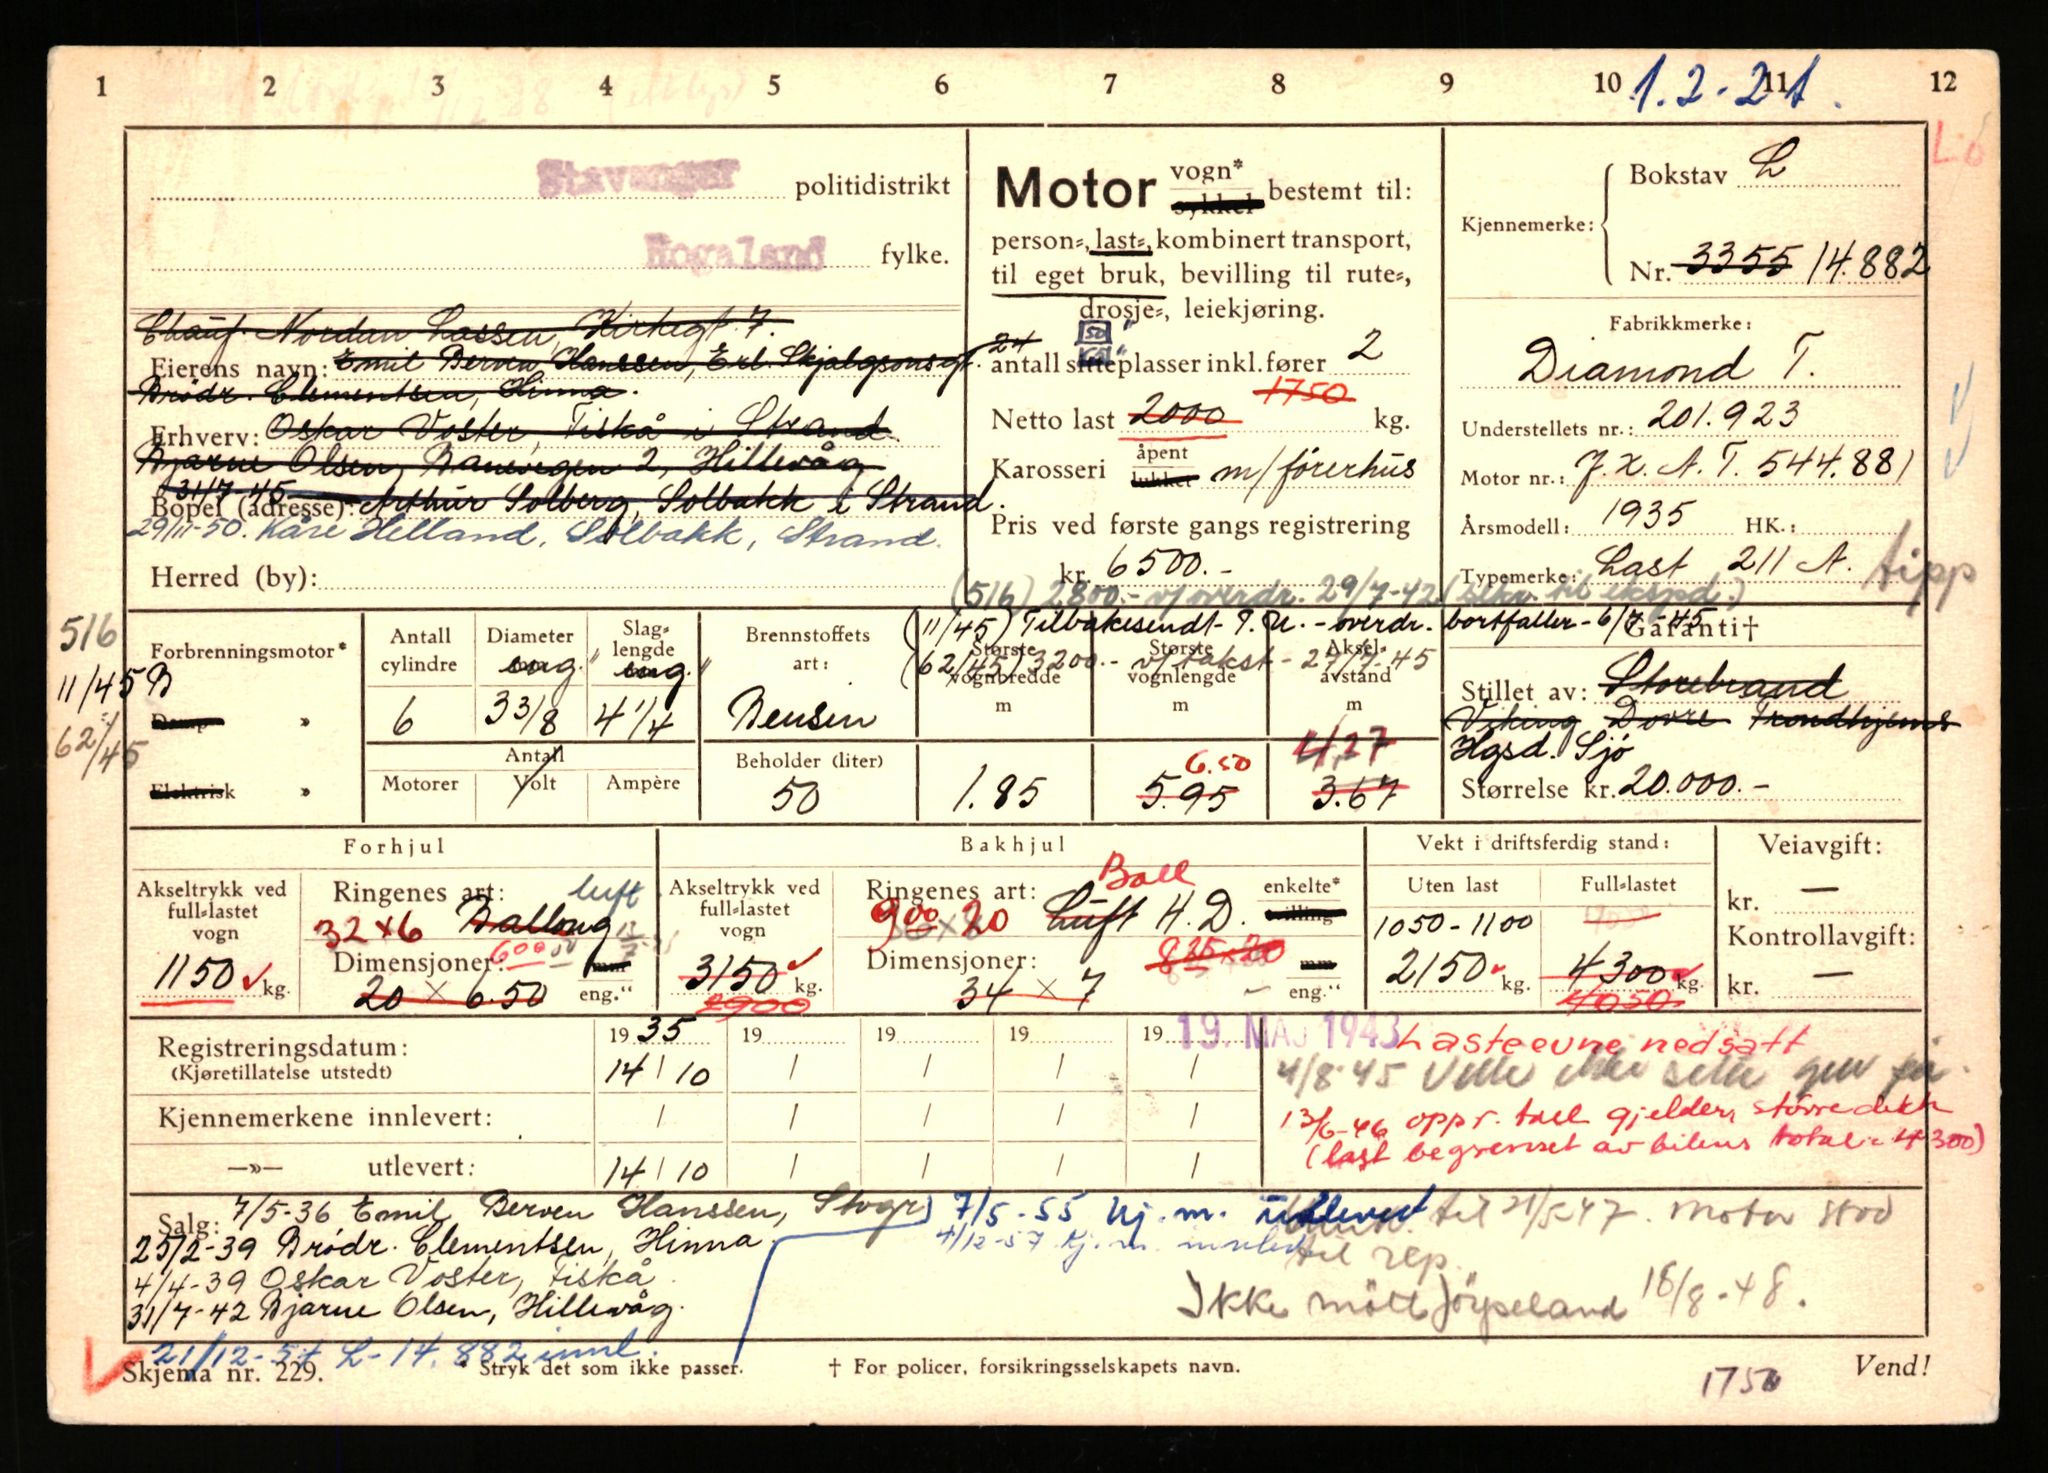 1 2 3 4 5 6 7 8 9 10 11 12
1.2-21.
Stavanger politidistrikt
Rogaland fylke.
Chauf. Nordan Lassen, Kirkegt. 7.
Eierens navn: Emil Berven Hanssen, Erl. Skjalgsonsgt. 24
Brödr. Clementsen, Hinna.
Erhverv: Oskar Voster, Fiskå i Strand.
Bjarne Olsen, Banevegen 2, Hillevåg
31/7-45 Arthur Solberg, Solbakk i Strand.
Bopel (adresse):
29/11-50. Kåre Helland, Solbakk, Strand.
Herred (by):
Motor vogn* sykkel bestemt til:
person-, last-, kombinert transport,
til eget bruk, bevilling til rute-,
drosje-, leiekjøring.
50
antall sitteplasser inkl. fører 2
1750
Netto last 2000 kg.
Karosseri åpent lukket m/förerhus
Pris ved første gangs registrering
kr. 6500.-
L
Kjennemerke: Bokstav L
Nr. 3355 14.882
Fabrikkmerke:
Diamond T.
Understellets nr.: 201.923
Motor nr.: J.X.A.T. 544.881
Årsmodell: 1935 HK.:
Typemerke: Last 211 A. tipp
(516) 2800.- v/overdr. 29/7-42
(11/45) Tilbakesendt P.U. - overdr. bortfaller - 6/7-45
(62/45) 3200.- v/takst - 27/7-45
516
11/45
62/45
Forbrenningsmotor* B
Damp »
Elektrisk »
Antall cylindre
6
Diameter eng."
3 3/8
Slag-lengde eng."
4 1/4
Antall
Motorer Volt Ampère
Brennstoffets art:
Bensin
Beholder (liter)
50
Største vognbredde m
1.85
Største vognlengde m
6.50
5.95
Aksel-avstand m
4,27
3.67
Garanti†
Stillet av: Storebrand
Viking Dovre Trondhjems
Hgsd. Sjö
Størrelse kr. 20.000.-
Forhjul
Akseltrykk ved full-lastet vogn
1150 kg.
Ringenes art: luft
32 x 6 Ballong
Dimensjoner: 600
20 x 6.50 mm eng."
Bakhjul
Akseltrykk ved full-lastet vogn
3150 kg.
2900
Ringenes art: Ball
900 20 Luft H.D. enkelte* tvilling
Dimensjoner: 825 x 20
34 x 7 mm eng."
Vekt i driftsferdig stand:
Uten last Full-lastet
1050 - 1100
2150 kg. 4300 kg.
4050
Veiavgift:
kr. —
Kontrollavgift:
kr. —
Registreringsdatum: 19 35 19 19 19 19
(Kjøretillatelse utstedt) 14 / 10 / / / /
Kjennemerkene innlevert: / / / / /
—»— utlevert: 14 / 10 / / / /
19. MAJ 1943 Lasteevne nedsatt
4/8-45 Ville ikke
13/6-46 oppr. tall gjelder, större dekk
(last begrenset av bilens total = 4300)
Salg: 7/5-36 Emil Berven Hanssen, Stvgr.
25/2-39 Brödr. Clementsen, Hinna.
4/4-39 Oskar Voster, Fiskå.
31/7-42 Bjarne Olsen, Hillevåg.
21/12-57 L-14.882 innl.
7/5-55 kj.m. utlevert
4/12-57 kj.m. innlevert
til 21/5-47. Motor stod
til rep.
Ikke mött Jörpeland 18/8-48.
Skjema nr. 229.
* Stryk det som ikke passer.
† For policer, forsikringsselskapets navn.
1750
Vend!